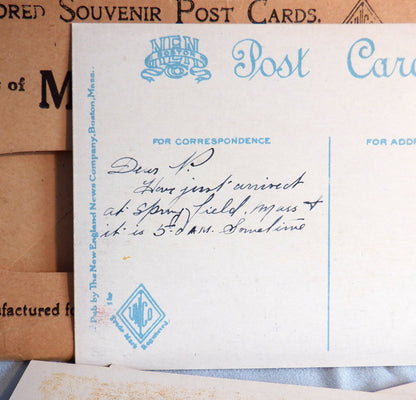 ORED SOUVENIR POST CARDS.
s of M
ufactured fo
NEN
BOSTON
Post Card
FOR CORRESPONDENCE
FOR ADDR
Dear N.
Have just arrived
at Springfield, Mass &
it is 5 AM. Sometime
Pub by The New England News Company, Boston, Mass.
The
UNCo
Trade Mark
Registered.